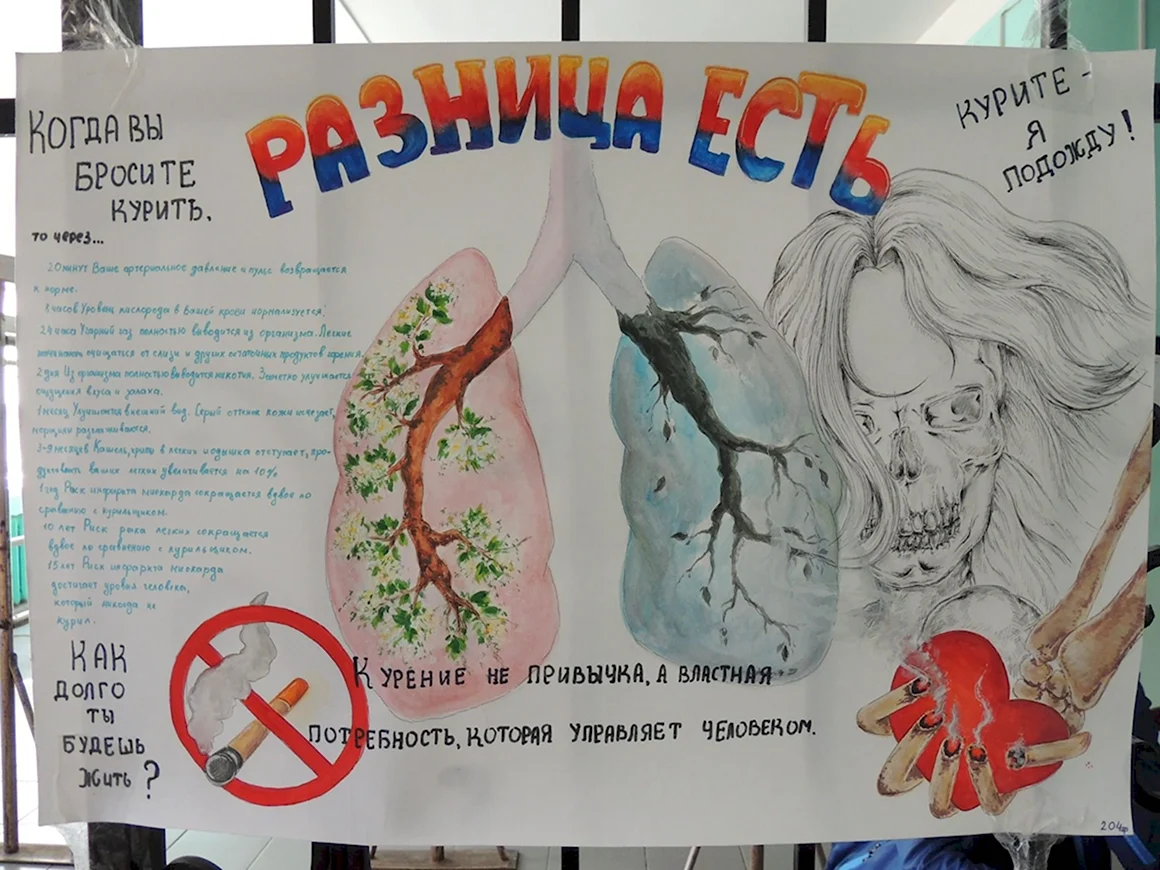 РАЗНИЦА ЕСТЬ
КОГДА ВЫ
БРОСИТЕ
КУРИТЬ,
то через...
20 минут Ваше артериальное давление и пульс возвращается
к норме.
8 часов Уровень кислорода в Вашей крови нормализуется.
24 часа Угарный газ полностью выводится из организма. Легкие
начинают очищаться от слизи и других остаточных продуктов горения.
2 дня Из организма полностью выводится никотин. Заметно улучшается
ощущения вкуса и запаха.
1 месяц Улучшается внешний вид. Серый оттенок кожи исчезает,
морщины разглаживаются.
3-9 месяцев Кашель, хрипы в легких и одышка отступает, про-
дуктовать ваших легких увеличивается на 10%
1 год Риск инфаркта миокарда сокращается вдвое по
сравнению с курильщиком.
10 лет Риск рака легких сокращается
вдвое по сравнению с курильщиком.
15 лет Риск инфаркта миокарда
достигает уровня человека,
который никогда не
курил.
КАК
ДОЛГО
ТЫ
БУДЕШЬ
ЖИТЬ?
КУРИТЕ -
Я
ПОДОЖДУ!
КУРЕНИЕ НЕ ПРИВЫЧКА, А ВЛАСТНАЯ
ПОТРЕБНОСТЬ, КОТОРАЯ УПРАВЛЯЕТ ЧЕЛОВЕКОМ.
204гр